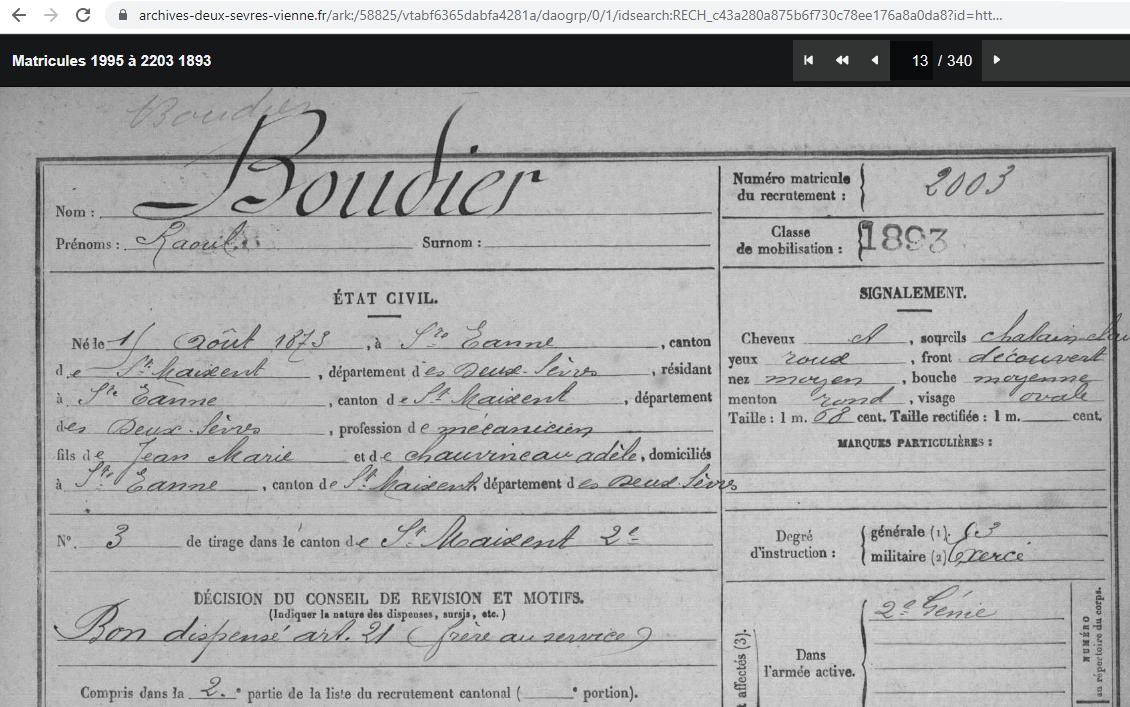 archives-deux-sevres-vienne.fr/ark:/58825/vtabf6365dabfa4281a/daogrp/0/1/idsearch:RECH_c43a280a875b6f730c78ee176a8a0da8?id=htt...
Matricules 1995 à 2203 1893
13 / 340
Boudier
Boudier
Nom :
Prénoms : Raoul Surnom :
Numéro matricule du recrutement : 2003
Classe de mobilisation : 1893
ÉTAT CIVIL.
Né le Août 1873, à Ste Eanne, canton
de St Maixent, département des Deux-Sèvres, résidant
à Ste Eanne, canton de St Maixent, département
des Deux-Sèvres, profession de mécanicien
fils de Jean Marie et de chauvineau adèle, domiciliés
à Ste Eanne, canton de St Maixent, département des Deux Sèvres
N°. 3 de tirage dans le canton de St Maixent 2e
DÉCISION DU CONSEIL DE REVISION ET MOTIFS.
(Indiquer la nature des dispenses, sursis, etc.)
Bon dispensé art. 21 (frère au service)
Compris dans la 2.e partie de la liste du recrutement cantonal ( e portion).
SIGNALEMENT.
Cheveux et, sourcils chatain
yeux roux, front découvert
nez moyen, bouche moyenne
menton rond, visage ovale
Taille : 1 m. 68 cent. Taille rectifiée : 1 m. cent.
MARQUES PARTICULIÈRES :
Degré d'instruction :
générale (1). 3
militaire (2) Exercé
affectés (3).
Dans l'armée active.
2e Génie
NUMÉRO
au répertoire du corps.